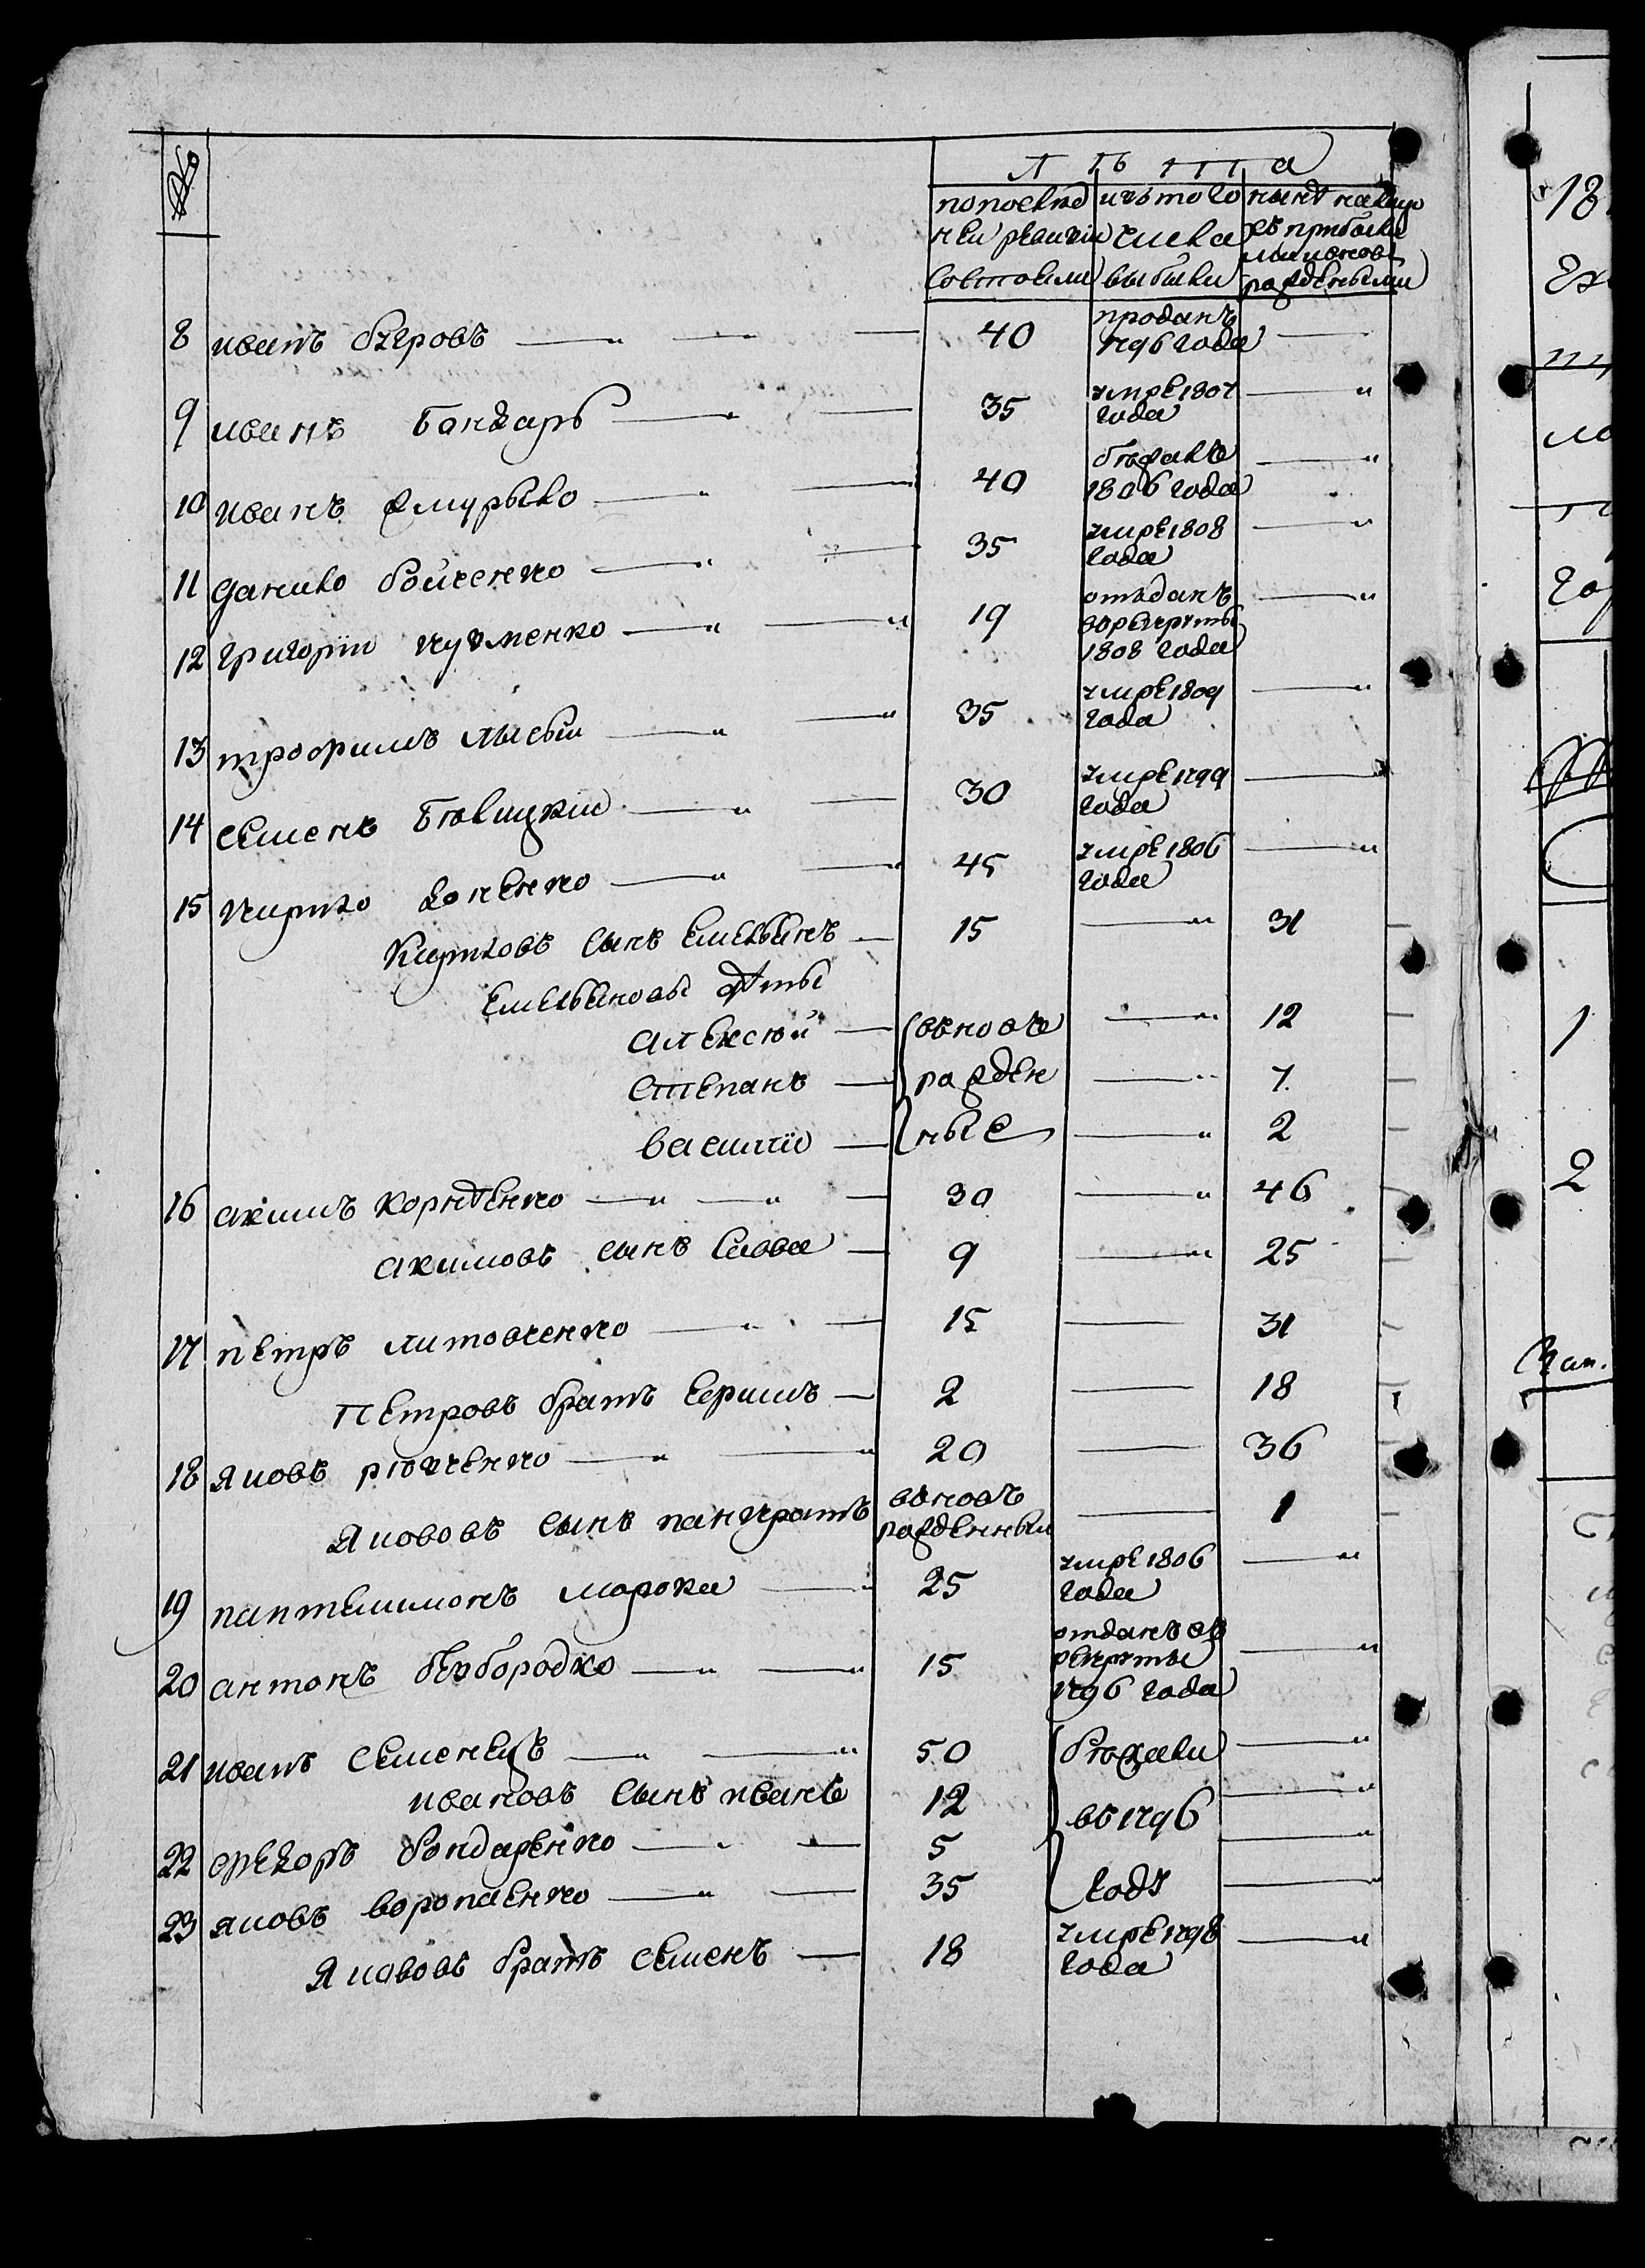 №
лѣта
по послѣд изъ того нынѣ на лицо
ней ревизіи числа съ прибылы
состояли выбыли ми и вновь
рожденными
8 иванъ 40 проданъ
1796 года
9 иванъ бондарь 35 умре 1807
года
10 иванъ хмурыло 40 бѣжалъ
1806 года
11 данило бойченко 35 умре 1808
года
12 григорій кузменко 19 отъданъ
в рекруты
1808 года
13 трофимъ лысый 35 умре 1809
года
14 семенъ 30 умре 1799
года
15 кирило 45 умре 1806
года
кириловъ сынъ емельянъ 15 31
емельяновы дѣты
алексѣй вновь 12
степанъ рожден 7
василій ные 2
16 акимъ корнѣенко 30 46
акимовъ сынъ савва 9 25
17 петръ литовченко 15 31
петровъ братъ 2 18
18 яковъ 20 36
яковов сынъ панкратъ вновь
рожденный 1
19 пантелимонъ морока 25 умре 1806
года
20 антонъ безбородко 15 отданъ въ
рекруты
1796 года
21 иванъ семенецъ 50 бѣжали
ивановъ сынъ иванъ 12 въ 1796
22 федоръ бондаренко 5
23 яковъ воропаенко 35 годѣ
яковов братъ семенъ 18 умре 1798
года
18
1
2